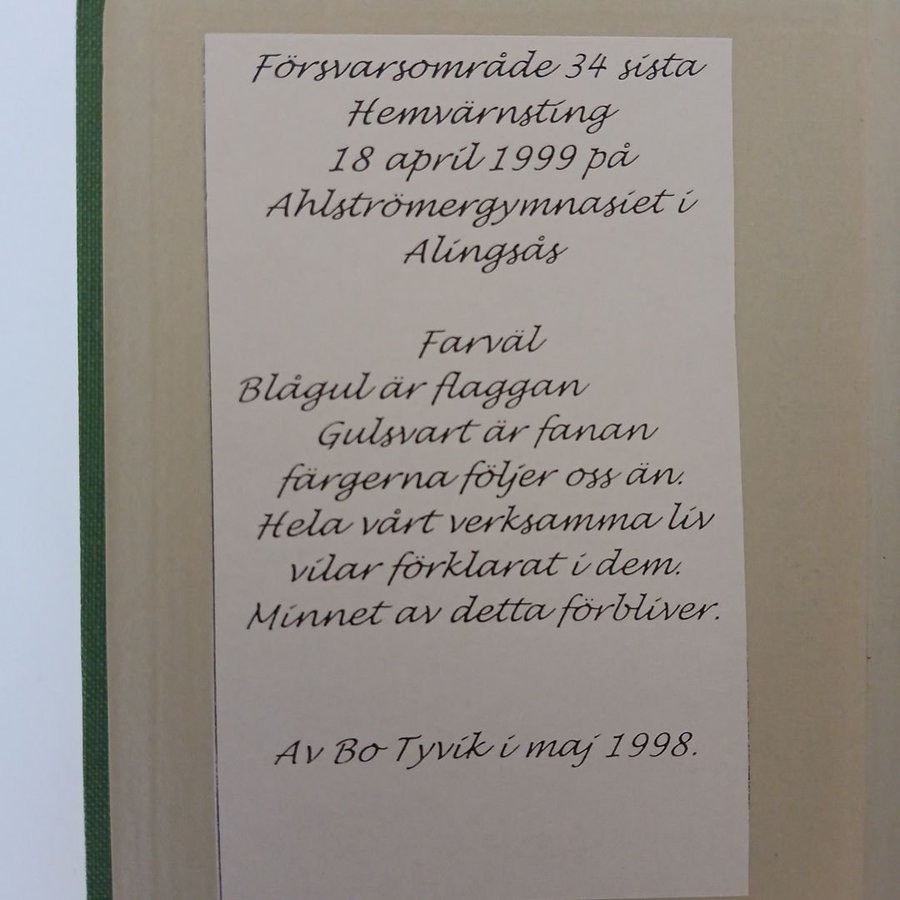 Försvarsområde 34 sista
Hemvärnsting
18 april 1999 på
Ahlströmergymnasiet i
Alingsås
Farväl
Blågul är flaggan
Gulsvart är fanan
färgerna följer oss än.
Hela vårt verksamma liv
vilar förklarat i dem.
Minnet av detta förbliver.
Av Bo Tyvik i maj 1998.